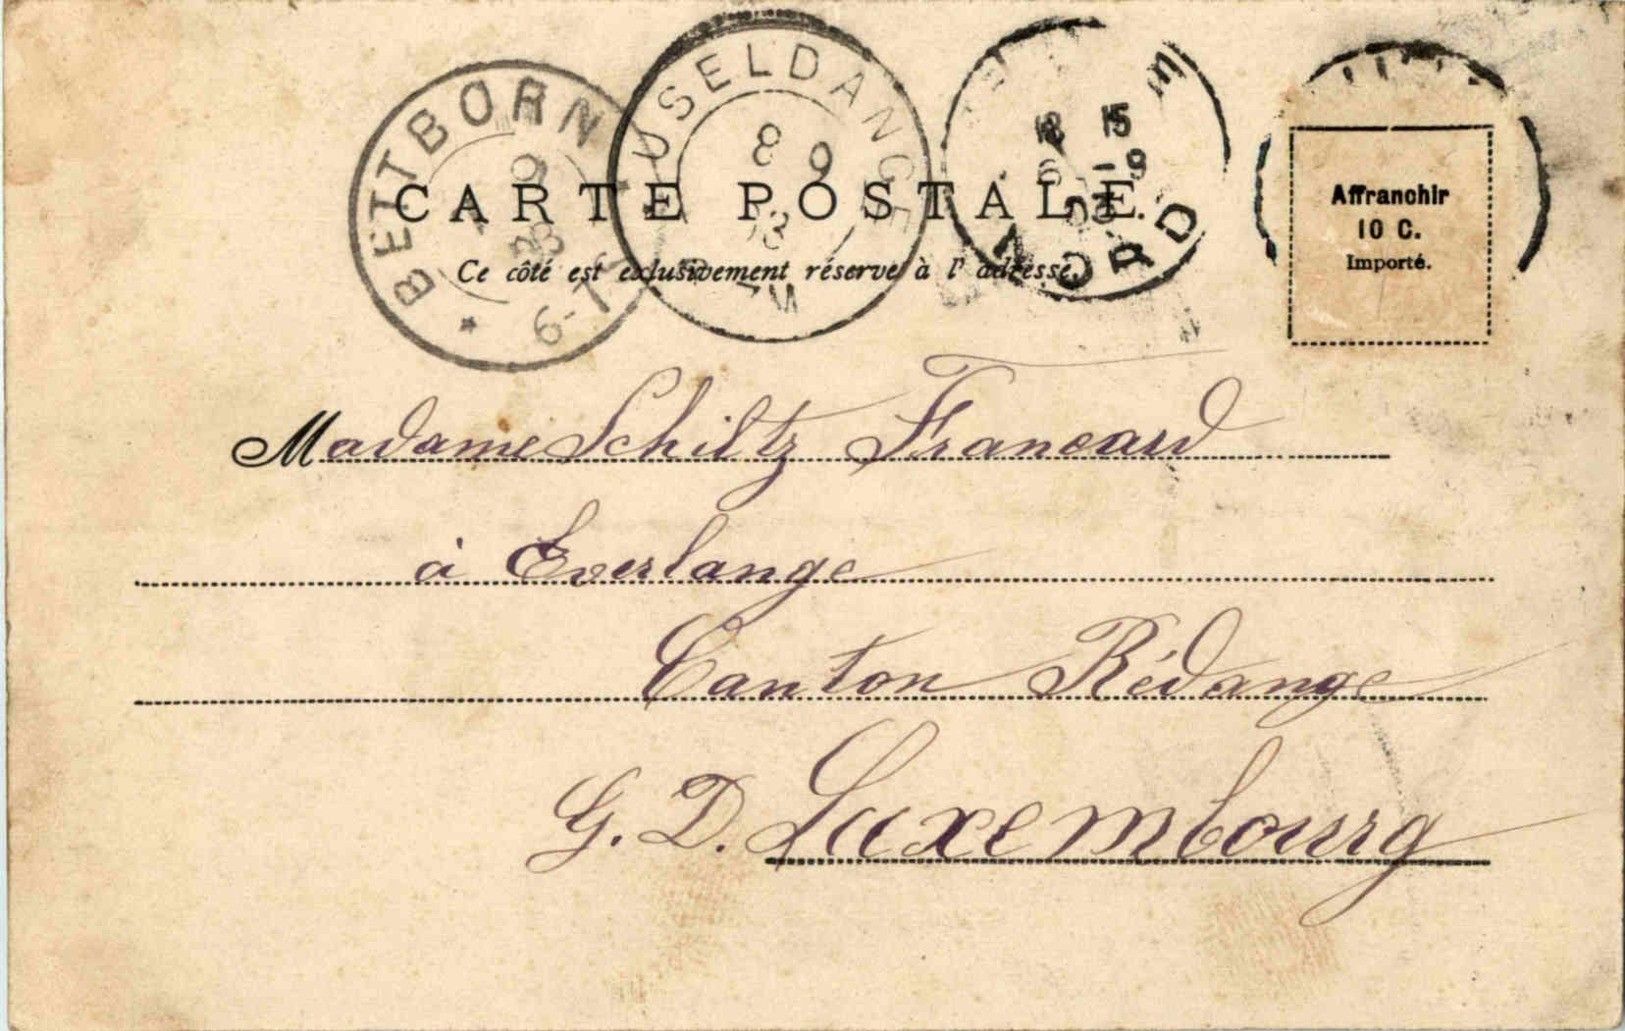 BETTBORN
USELDANGE
18 15
6 -9
03
NORD
CARTE POSTALE.
Ce côté est exclusivement réservé à l' adresse.
Affranchir
10 C.
Importé.
Madame Schiltz Francard
à Everlange
Canton Rédange
G. D. Luxembourg